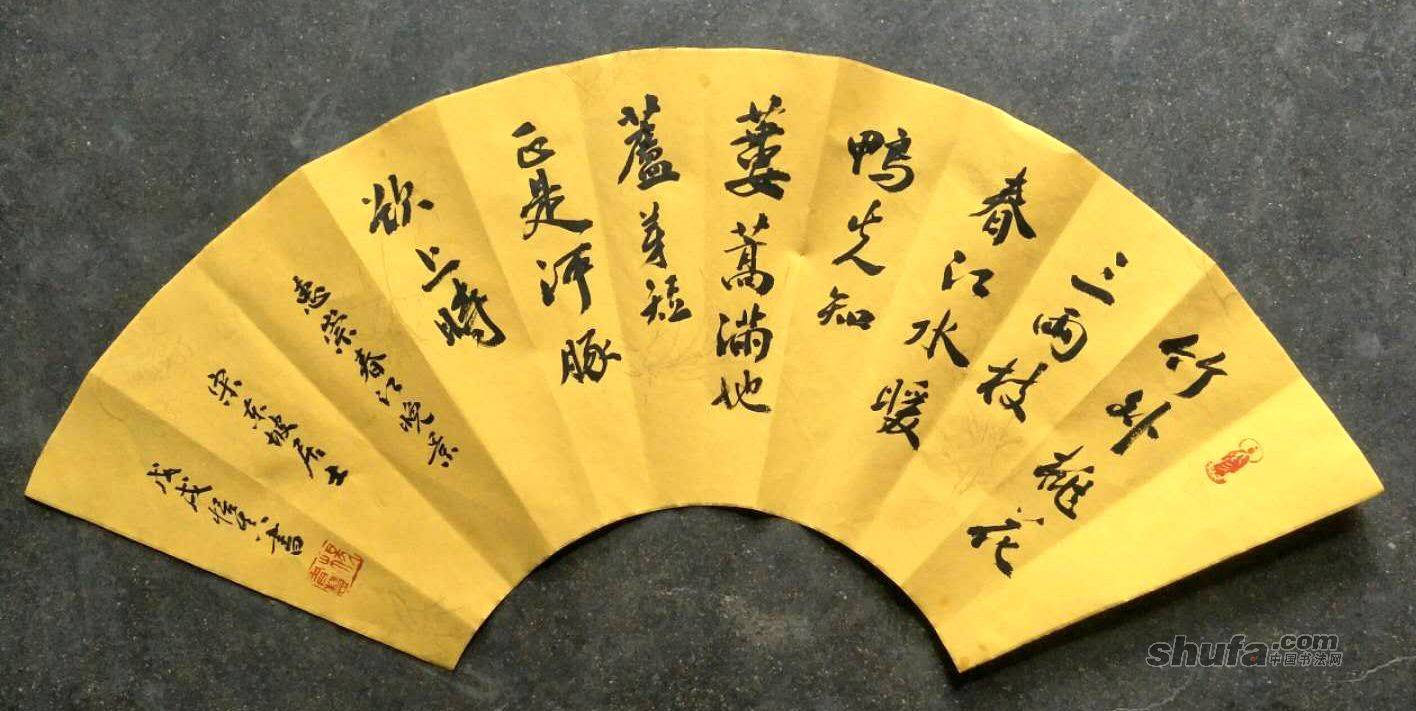 竹外桃花
三兩枝
春江水暖
鴨先知
蔞蒿滿地
蘆芽短
正是河豚
欲上時
惠崇春江晚景
宋东坡居士
戊戌悟書
shufa.com
中国书法网